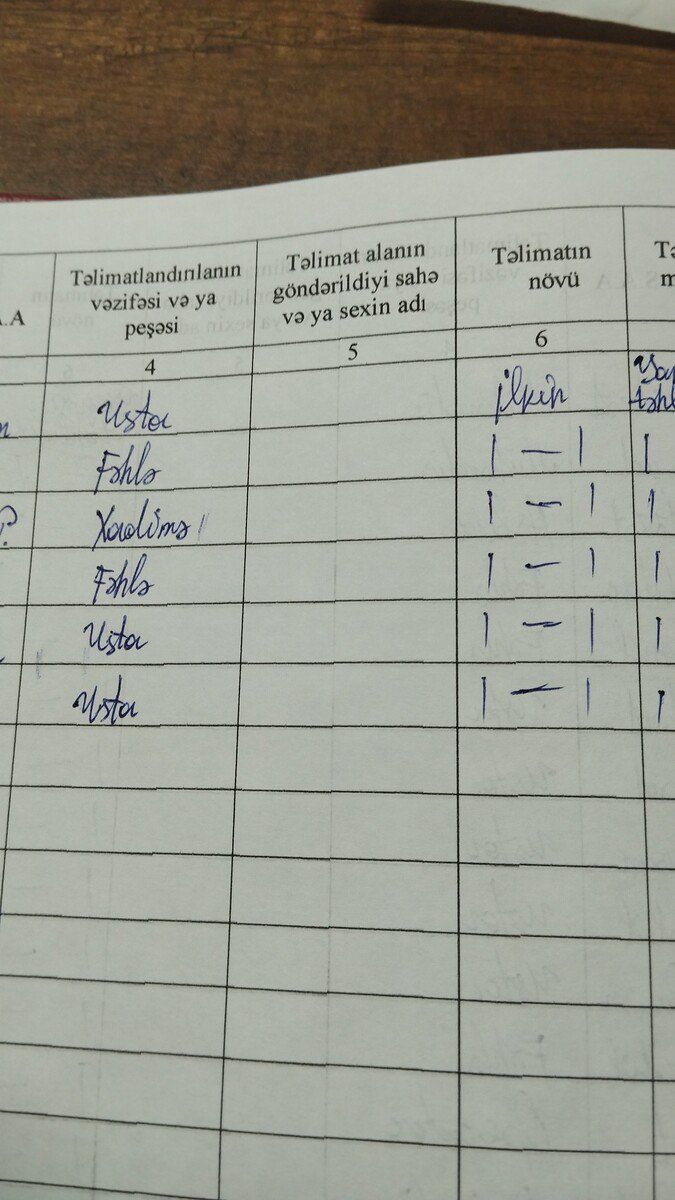 .A.A
Təlimatlandırılanın
vəzifəsi və ya
peşəsi
Təlimat alanın
göndərildiyi sahə
və ya sexin adı
Təlimatın
növü
Tə
m
4
5
6
Usta
İlkin
Fəhlə
I — I
I
Xadimə
I — I
I
Fəhlə
I — I
I
Usta
I — I
I
Usta
I — I
I